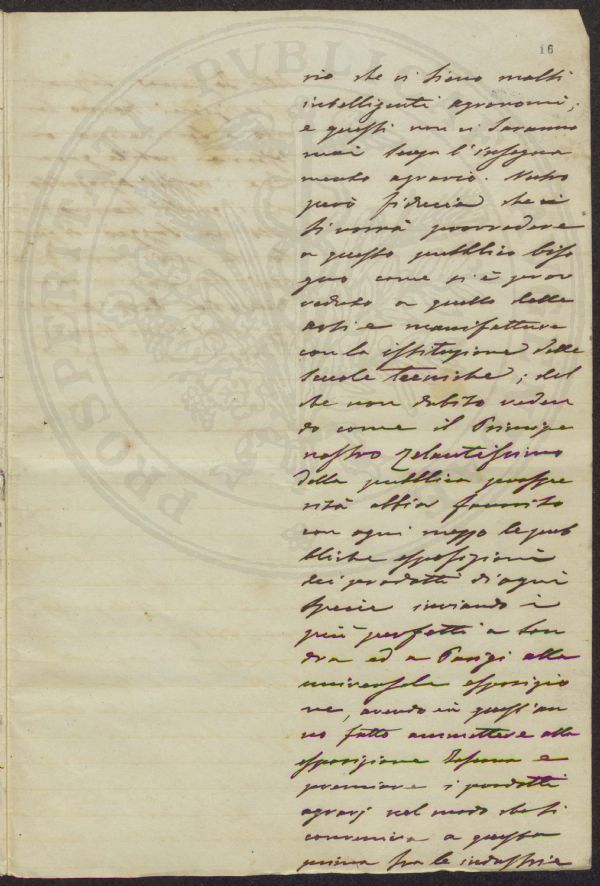 16
rio che vi siano molti
intelligenti agronomi,
e questi non vi saranno
mai senza l'insegna
mento agrario. Nutro
però fiducia che ci
si vorrà provvedere
a questo pubblico biso
gno come si è prov
veduto a quello delle
arti e manifatture
con la istituzione delle
scuole tecniche; del
che non dubito veden
do come il Principe
nostro zelantissimo
della pubblica prospe
rità abbia favorito
con ogni mezzo le pub
bliche esposizioni
dei prodotti di ogni
specie inviando i
più perfetti a Lon
dra ed a Parigi alla
universale esposizio
ne, avendo in quest'an
no fatto ammettere alla
esposizione e
premiare i prodotti
agrarj nel modo che si
conveniva a questa
prima fra le industrie
PROSPERITATI PUBLICAE